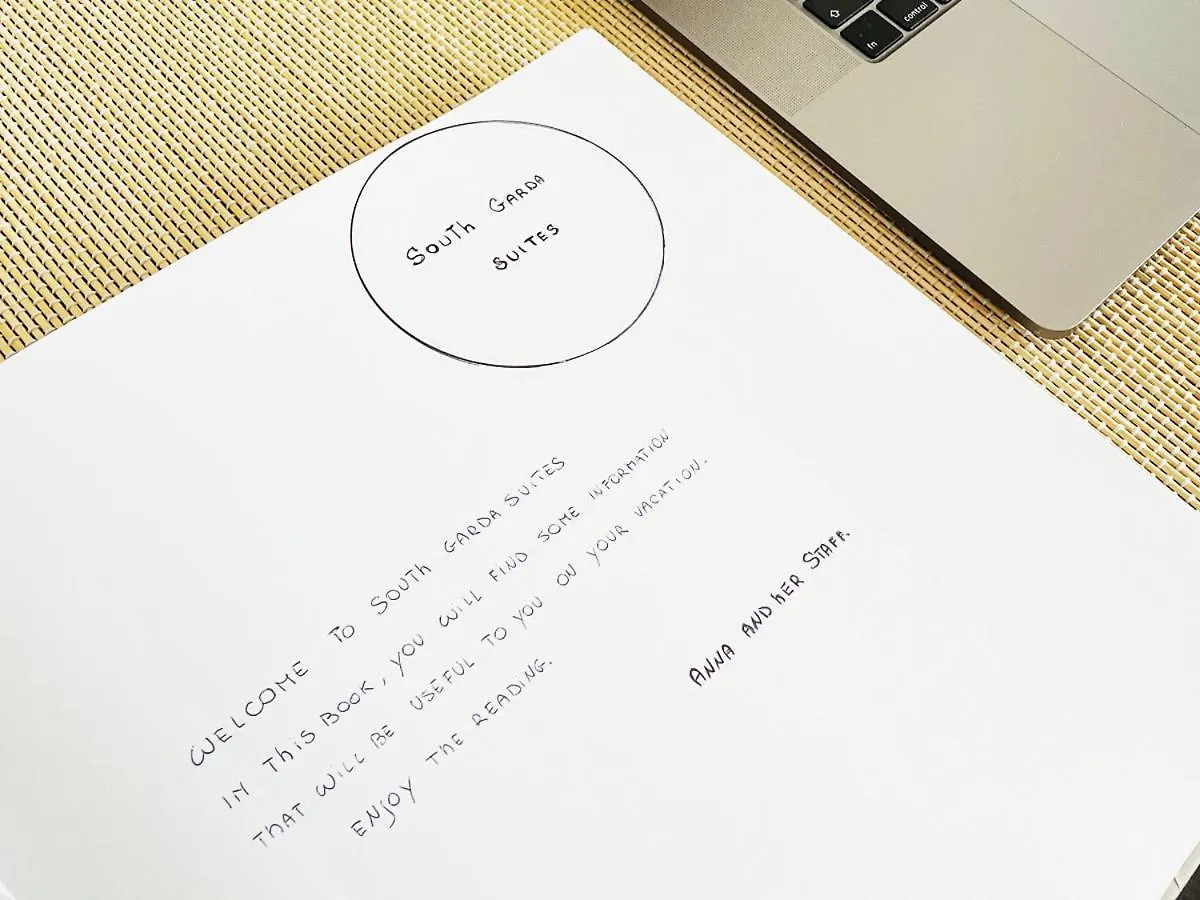 control
fn
South Garda
SUITES
WELCOME TO SOUTh GARDA SUITES
IN ThiS BOOK, YOU WiLL FIND SOME INFORMATION
ThAT WiLL BE USEFUL TO YOU ON YOUR VACATION.
ENJOY ThE READING.
ANNA AND hER STAFF.